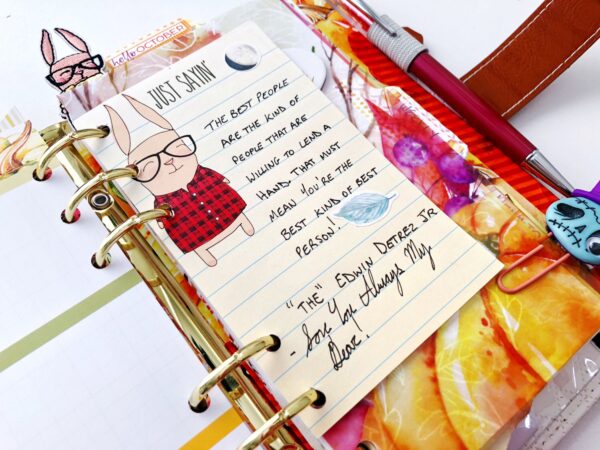 hello OCTOBER
JUST SAYIN'
THE BEST PEOPLE
ARE THE KIND OF
PEOPLE THAT ARE
WILLING TO LEND A
HAND. THAT MUST
MEAN YOU'RE THE
BEST KIND OF BEST
PERSON!
"THE" EDWIN DETREZ JR
- Love You Always My
Dear.